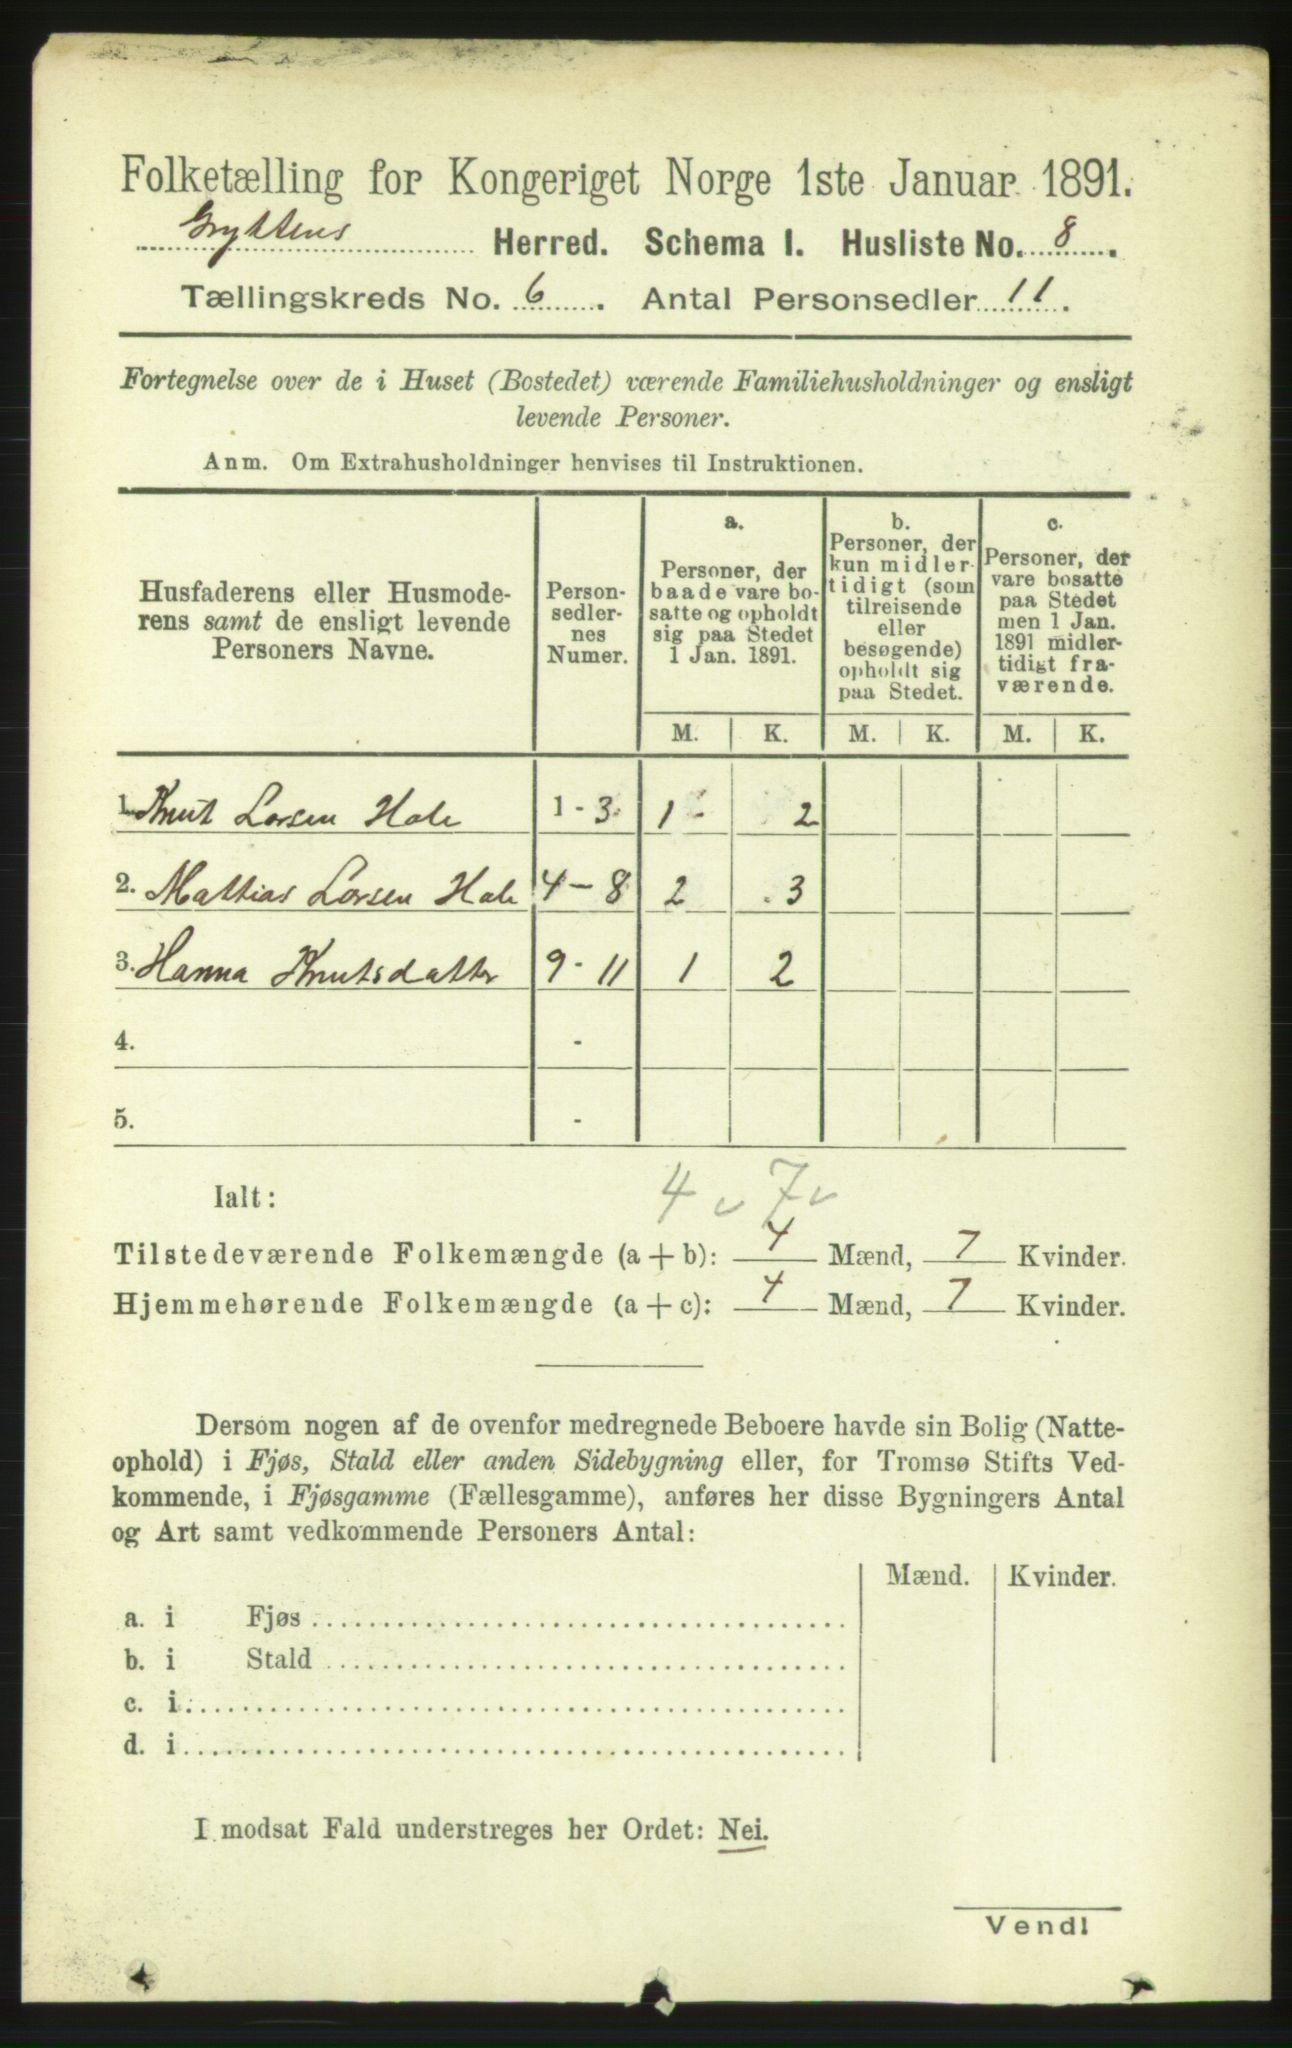 Folketælling for Kongeriget Norge 1ste Januar 1891.
Gryttens Herred. Schema I. Husliste No. 8.
Tællingskreds No. 6. Antal Personsedler 11.
Fortegnelse over de i Huset (Bostedet) værende Familiehusholdninger og ensligt
levende Personer.
Anm. Om Extrahusholdninger henvises til Instruktionen.
Husfaderens eller Husmode-
rens samt de ensligt levende
Personers Navne.
Person-
sedler-
nes
Numer.
a.
Personer, der
baade vare bo-
satte og opholdt
sig paa Stedet
1 Jan. 1891.
b.
Personer, der
kun midler-
tidigt (som
tilreisende
eller
besøgende)
opholdt sig
paa Stedet.
c.
Personer, der
vare bosatte
paa Stedet
men 1 Jan.
1891 midler-
tidigt fra-
værende.
M. K. M. K. M. K.
1. Knut Larsen Hole 1 - 3 1 - 2
2. Mattias Larsen Hole 4 - 8 2 3
3. Hanna Knutsdatter 9 - 11 1 2
4. -
5. -
4 v 7 v
Ialt:
Tilstedeværende Folkemængde (a + b): 4 Mænd, 7 Kvinder.
Hjemmehørende Folkemængde (a + c): 4 Mænd, 7 Kvinder.
Dersom nogen af de ovenfor medregnede Beboere havde sin Bolig (Natte-
ophold) i Fjøs, Stald eller anden Sidebygning eller, for Tromsø Stifts Ved-
kommende, i Fjøsgamme (Fællesgamme), anføres her disse Bygningers Antal
og Art samt vedkommende Personers Antal:
Mænd. Kvinder.
a. i Fjøs
b. i Stald
c. i
d. i
I modsat Fald understreges her Ordet: Nei.
Vend!